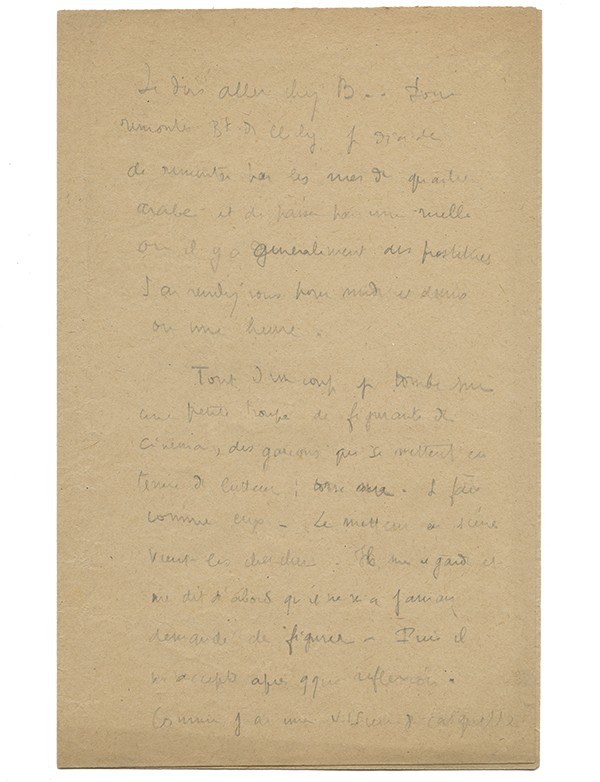 Je dois aller chez B.. Pour
remonter Bd de Clichy, je décide
de remonter par les rues du quartier
arabe et de passer par une ruelle
où il y a généralement des prostituées
J'ai rendez vous pour midi et demi
ou une heure.
Tout d'un coup je tombe sur
une petite troupe de figurants de
cinéma, des garçons qui se mettent en
tenue de lutteur : torse nu. Je fais
comme eux – Le metteur en scène
vient les chercher. Il me regarde et
me dit d'abord qu'il ne m'a jamais
demandé de figurer – Puis il
m'accepte après qque réflexion.
Comme j'ai une casquette